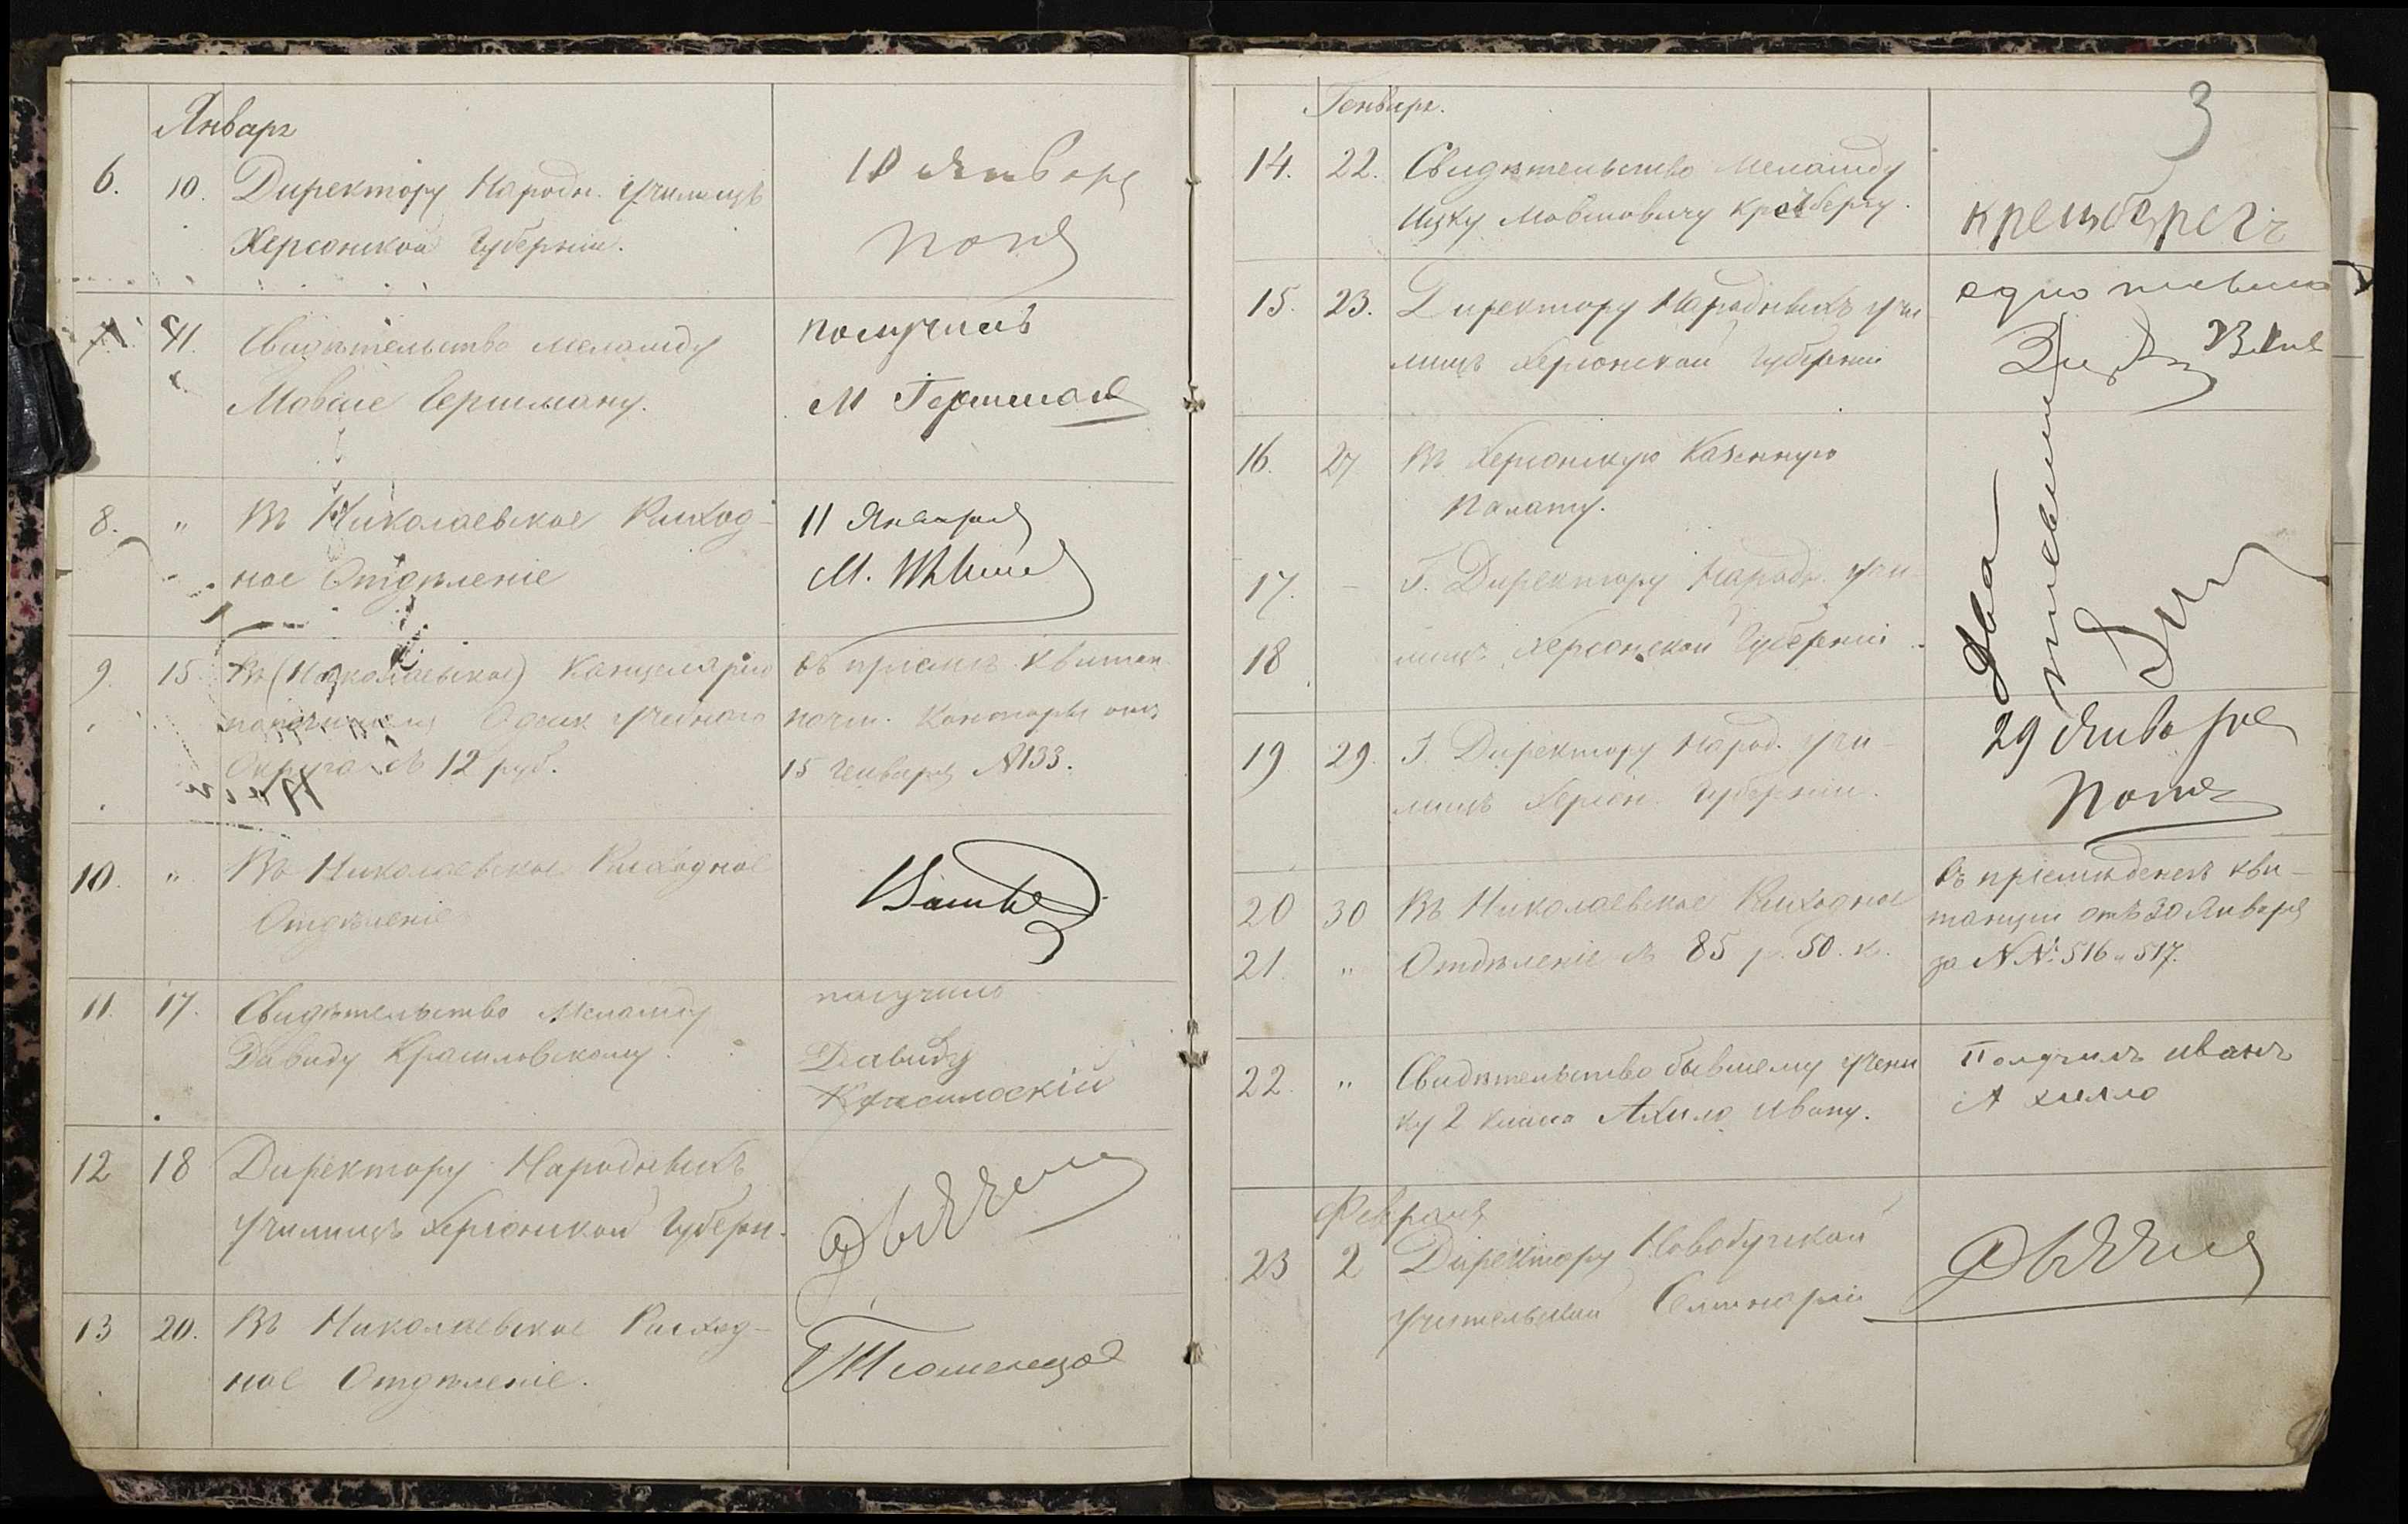 Январь
6. 10. Директору Народн. Училищъ
Херсонской Губерніи.
10 Января
7. 11. Свидѣтельство меламду
Мовше Гершману.
получилъ
М Гершман
8. " Въ Николаевское Расход-
ное Отдѣленіе
11 Января
М.
9. 15. Въ (Николаевское) Канцелярію
попечителя Одесск Учебнаго
Округа съ 12 руб.
въ пріемѣ квитан.
почт. Конторы отъ
15 Генваря № 133.
10. " Въ Николаевское Расходное
Отдѣленіе
11. 17. Свидѣтельство Меламду
Давиду Красиловскому.
получилъ
Давидъ
12 18 Директору Народныхъ
Училищъ Херсонской Губерн.
13 20. Въ Николаевское Расход-
ное Отдѣленіе.
3
Генварь.
14. 22. Свидѣтельство Меламду
Ицку Мовшовичу
15. 23. Директору Народныхъ Учи
лищъ Херсонской Губерніи
одно
16. 27 Въ Херсонскую Казенную
Палату.
17. – Г. Директору Народн. Учи
18 лищъ Херсонской Губерніи
Два
19 29. Г. Директору Народ. Учи-
лищъ Херсон. Губерніи.
29 Января
20 30 Въ Николаевское Расходное
21. " Отдѣленіе съ 85 р. 50. к.
Въ пріемѣ денегъ кви-
танціи отъ 30 Января
за №№ 516 и 517.
22. " Свидѣтельство бывшему Учени
ку 2 класса Ахило Ивану.
Получилъ иванъ
Ахилло
Февраля
23 2 Директору Новобугской
Учительской Семинаріи